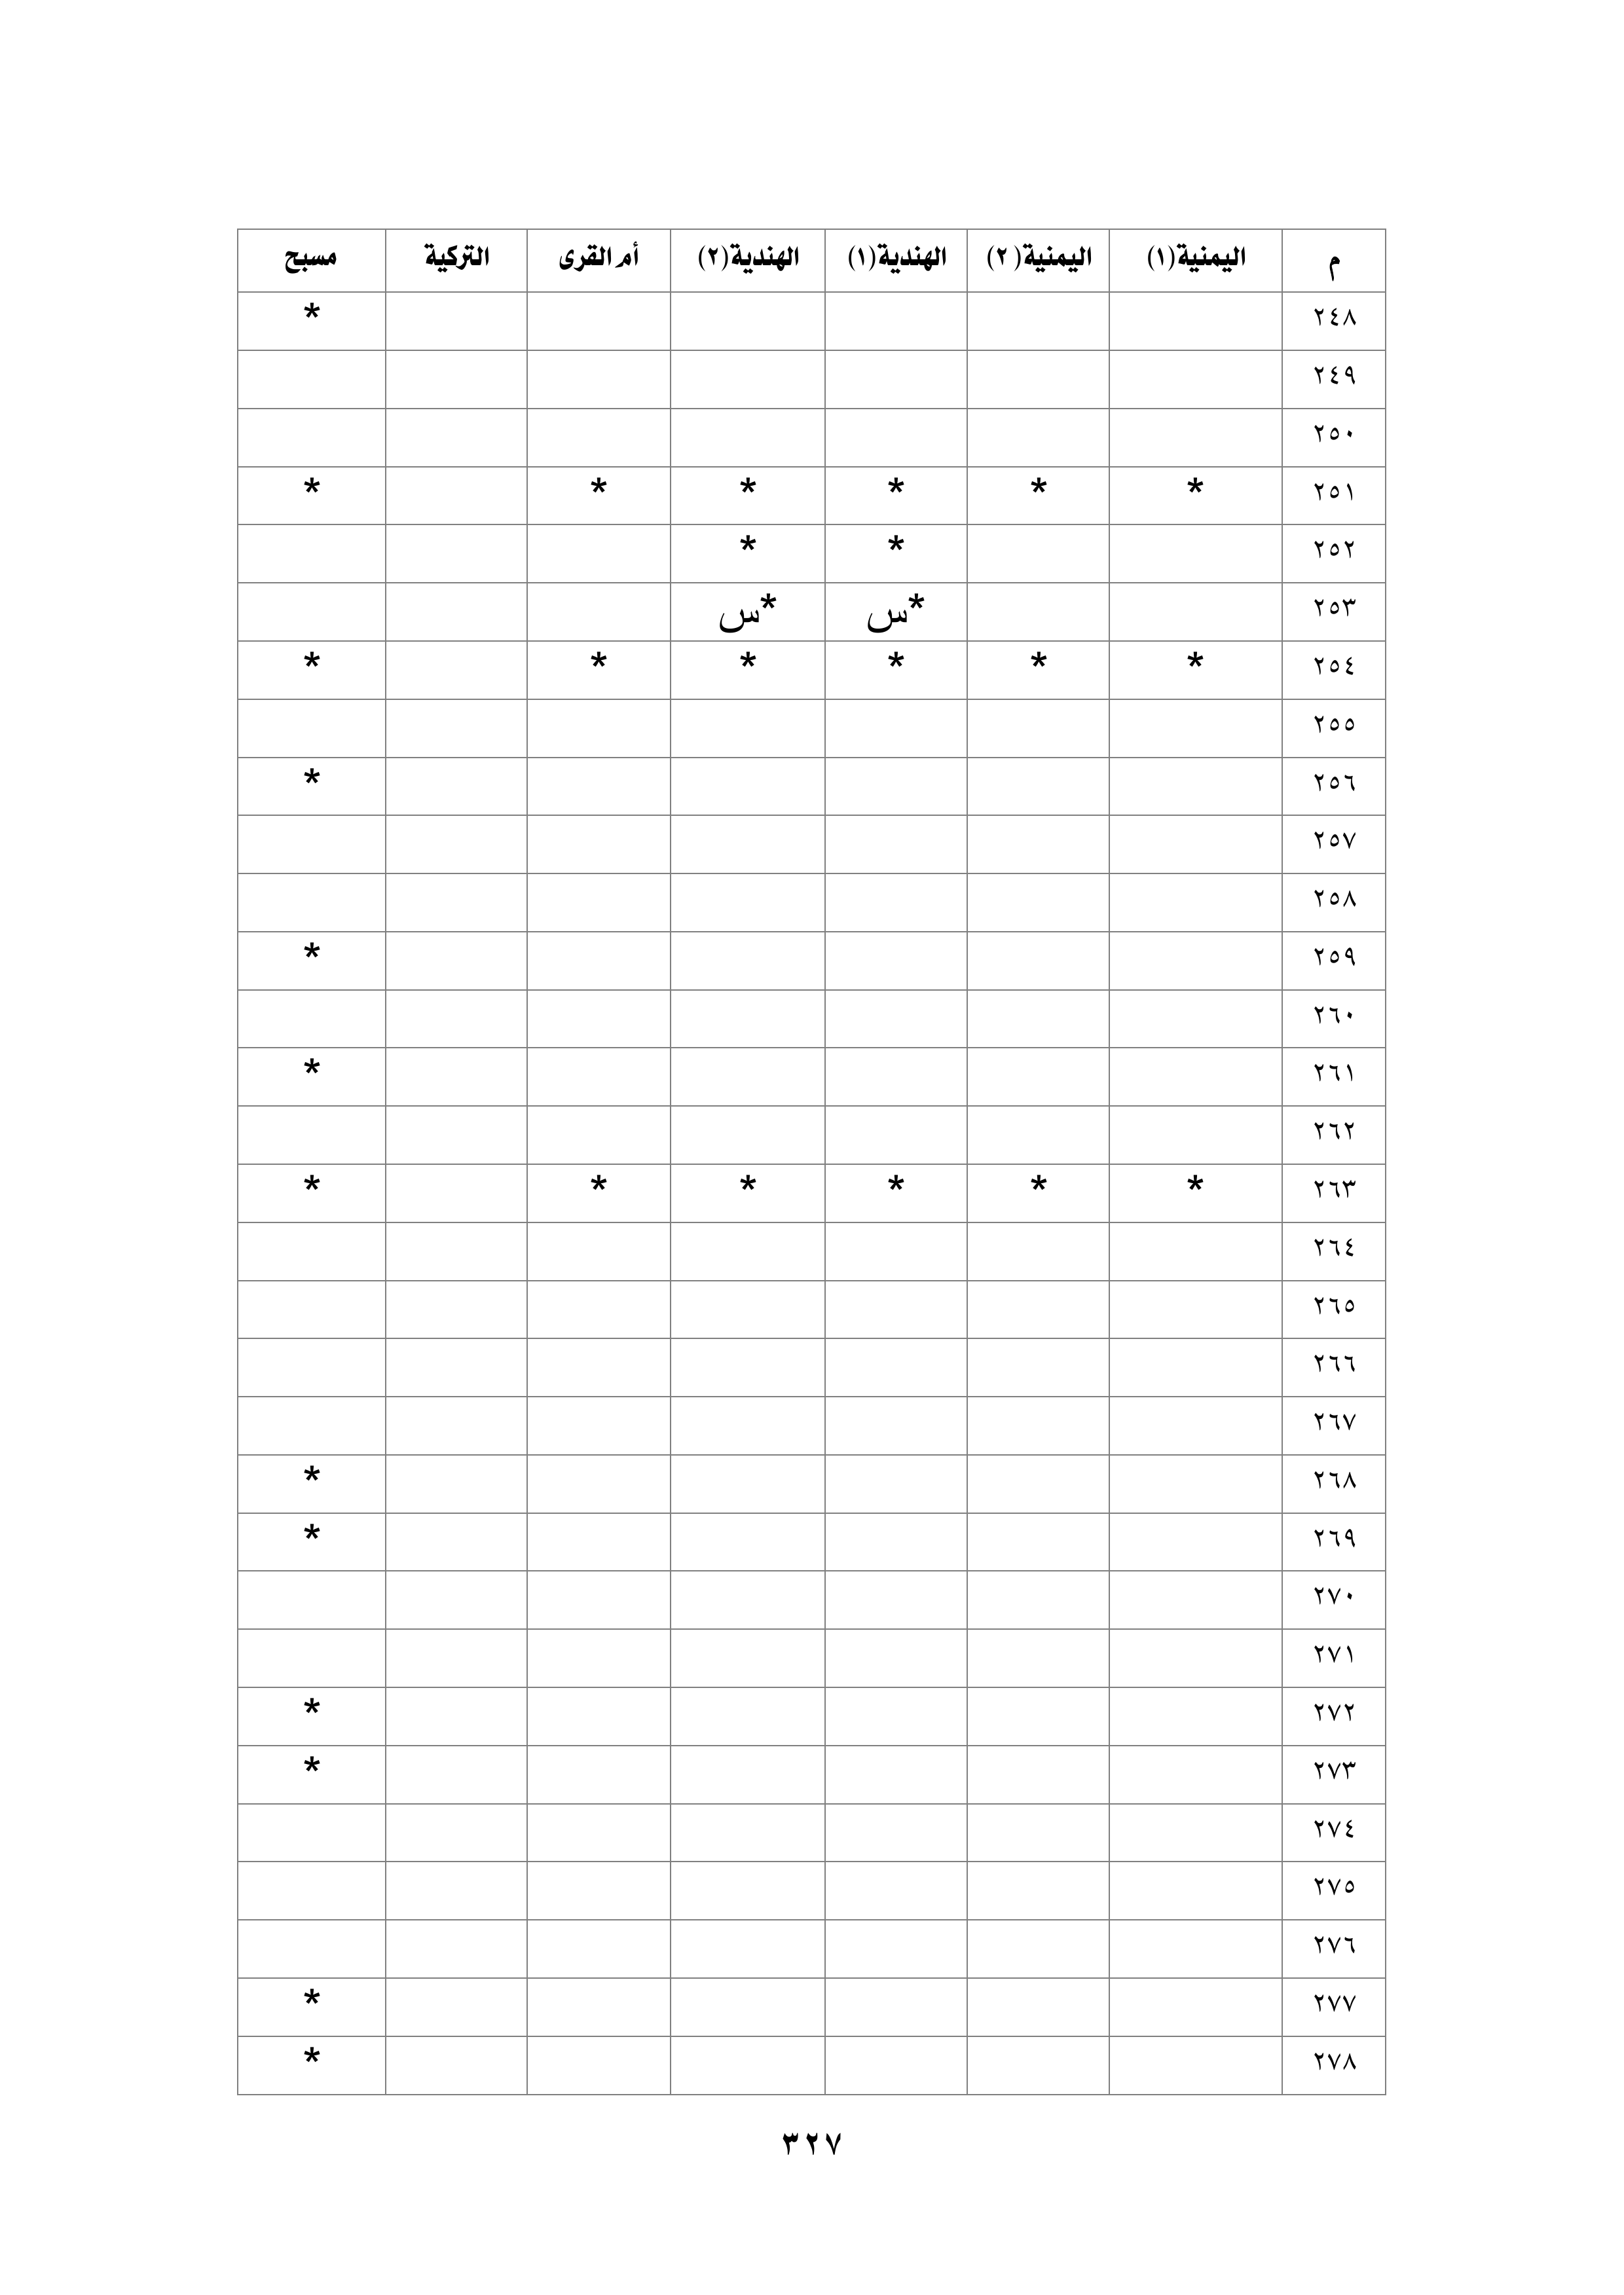 م اليمنية(١) اليمنية( ٢) الهندية(١) الهندية(٢) أم القرى التركية مسبح
٢٤٨ *
٢٤٩
٢٥٠
٢٥١ * * * * * *
٢٥٢ * *
٢٥٣ *س *س
٢٥٤ * * * * * *
٢٥٥
٢٥٦ *
٢٥٧
٢٥٨
٢٥٩ *
٢٦٠
٢٦١ *
٢٦٢
٢٦٣ * * * * * *
٢٦٤
٢٦٥
٢٦٦
٢٦٧
٢٦٨ *
٢٦٩ *
٢٧٠
٢٧١
٢٧٢ *
٢٧٣ *
٢٧٤
٢٧٥
٢٧٦
٢٧٧ *
٢٧٨ *
٣٢٧